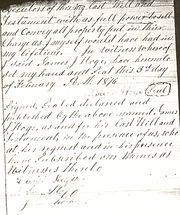 Executors of this my last Will and
Testament with as full power to sell
and Convey all property put in their
charge as I myself would have had in
my lifetime. In witness whereof
I said James J Hoge, have hereunto
set my hand and Seal this 3d day
of February A.D. 1876.
Hoge Seal
Signed, Sealed declared and
published by the above named James
Hoge, as and for his last Will and
Testament, in the presence of us, who
at his request and in his presence
have subscribed our names as
Witnesses thereto